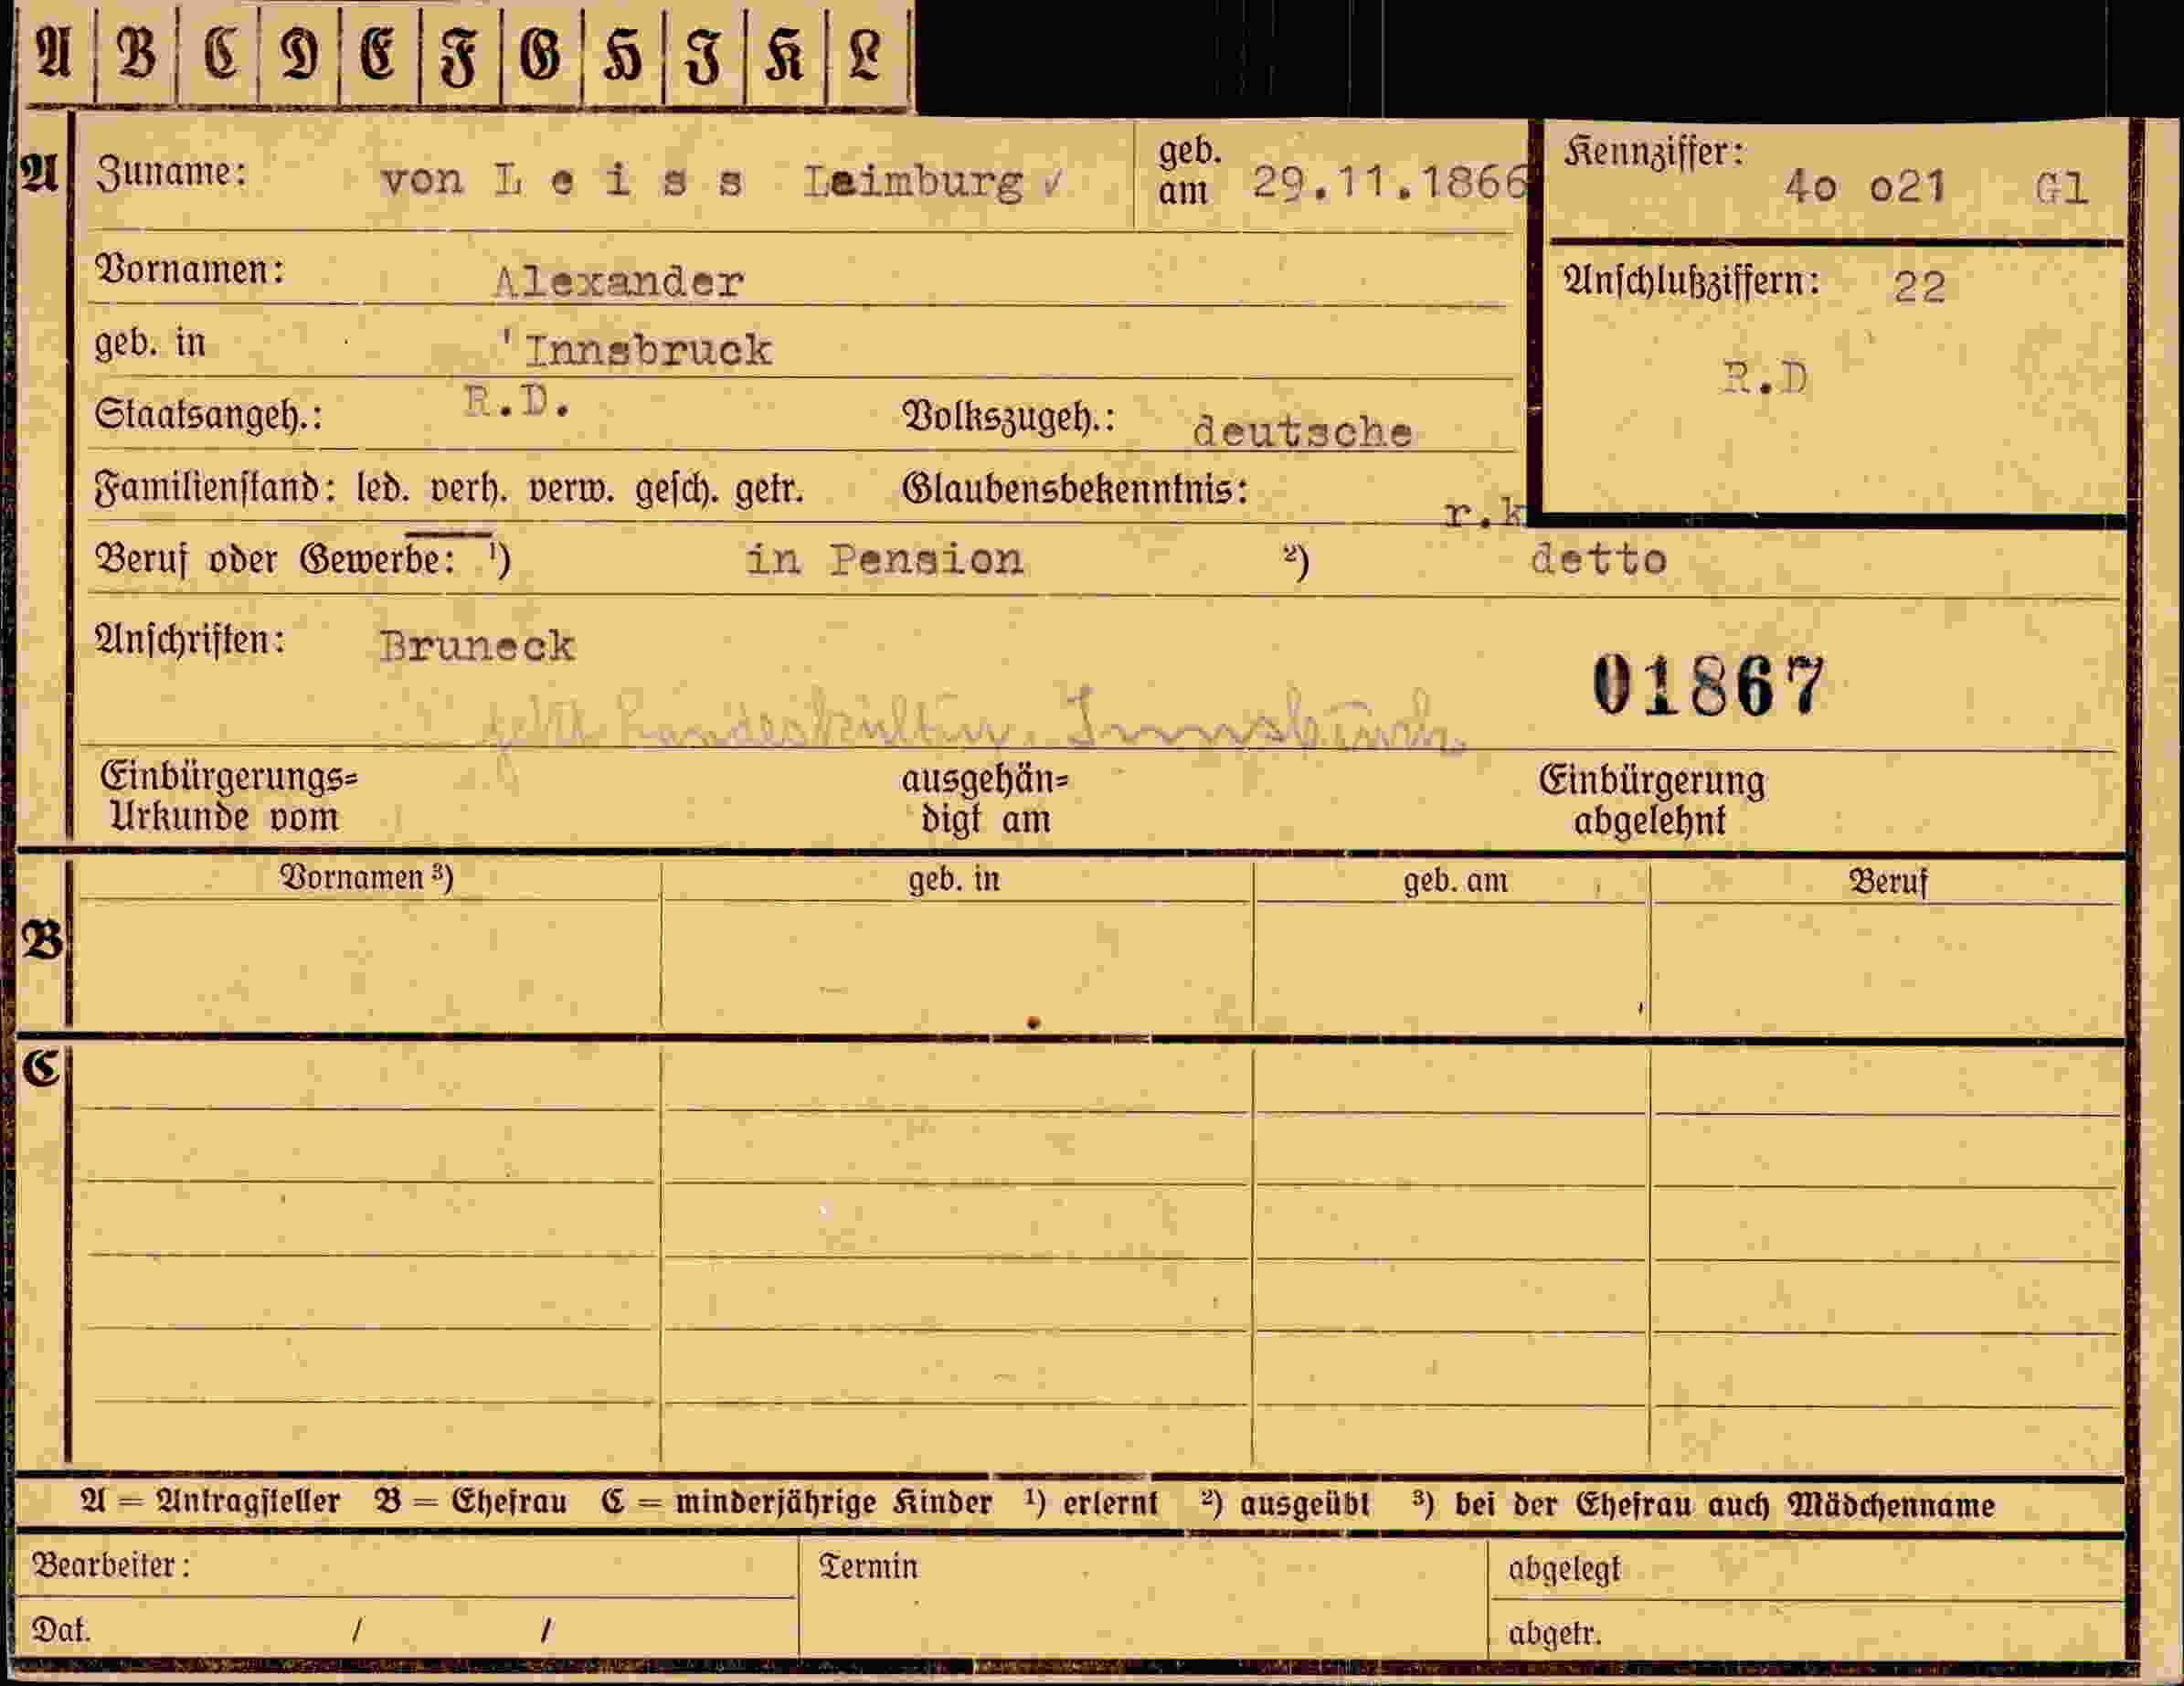 A B C D E F G H I K L
A Zuname: von L e i s s Leimburg ✓ geb. am 29.11.1866 Kennziffer: 4o o21 Gl
Vornamen: Alexander Anschlußziffern: 22
geb. in 'Innsbruck R.D
Staatsangeh.: R.D. Volkszugeh.: deutsche
Familienstand: led. verh. verw. gesch. getr. Glaubensbekenntnis: r.k
Beruf oder Gewerbe: ¹) in Pension ²) detto
Anschriften: Bruneck 01867
jetzt Landeskultur. Innsbruck
Einbürgerungs= ausgehän= Einbürgerung
Urkunde vom digt am abgelehnt
Vornamen ³) geb. in geb. am Beruf
B
C
A = Antragsteller B = Ehefrau C = minderjährige Kinder ¹) erlernt ²) ausgeübt ³) bei der Ehefrau auch Mädchenname
Bearbeiter: Termin abgelegt
Dat. / / abgetr.